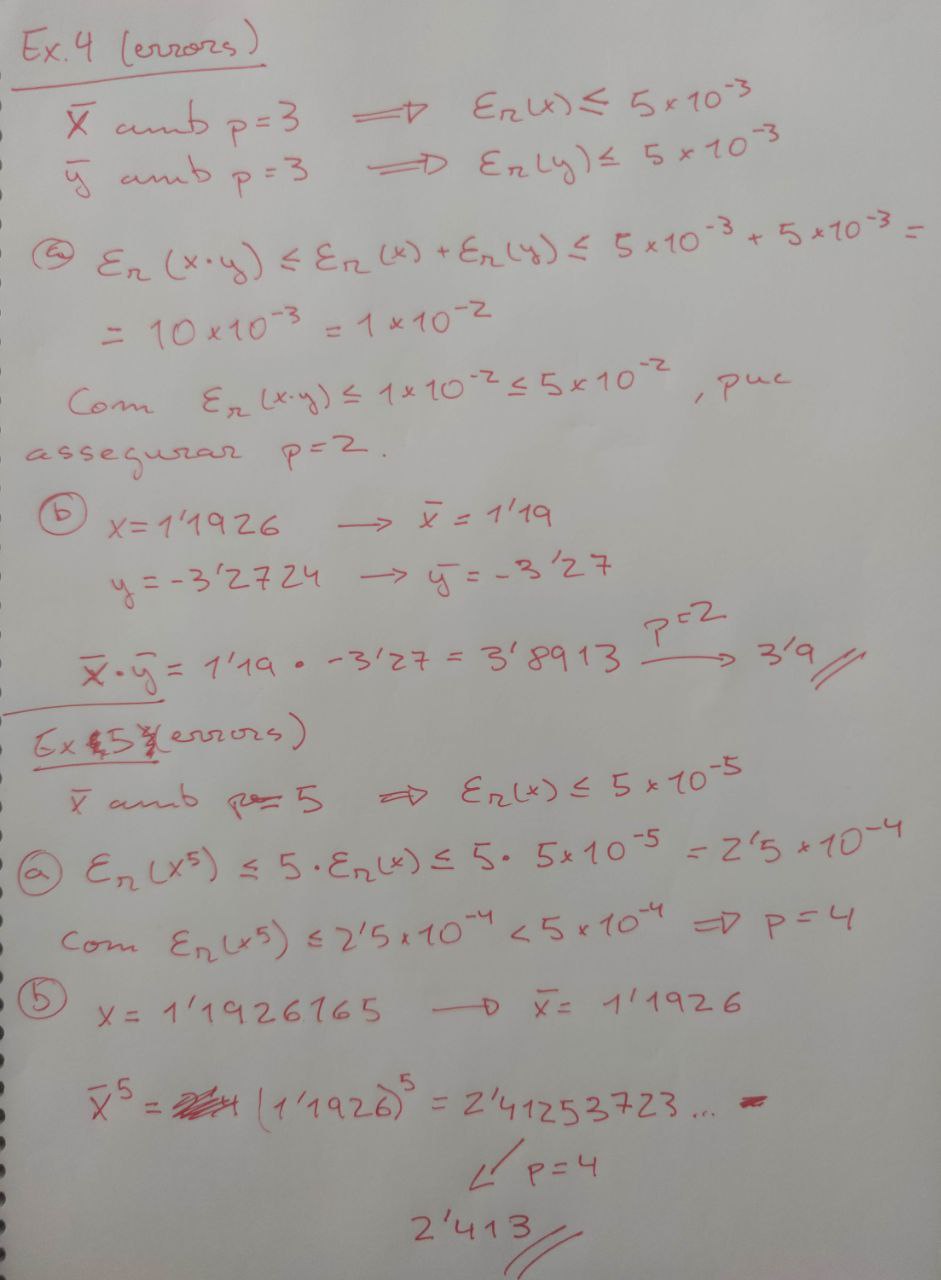 Ex.4 (errors)
x̄ amb p=3 ⟹ εr(x) ≤ 5×10⁻³
ȳ amb p=3 ⟹ εr(y) ≤ 5×10⁻³
ⓐ εr(x·y) ≤ εr(x) + εr(y) ≤ 5×10⁻³ + 5×10⁻³ =
= 10×10⁻³ = 1×10⁻²
Com εr(x·y) ≤ 1×10⁻² ≤ 5×10⁻², puc
assegurar p=2.
ⓑ x=1'1926 → x̄ = 1'19
y=-3'2724 → ȳ = -3'27
x̄·ȳ = 1'19 · -3'27 = 3'8913 p=2 → 3'9
Ex 5 (errors)
x̄ amb p=5 ⟹ εr(x) ≤ 5×10⁻⁵
ⓐ εr(x⁵) ≤ 5·εr(x) ≤ 5· 5×10⁻⁵ = 2'5×10⁻⁴
Com εr(x⁵) ≤ 2'5×10⁻⁴ < 5×10⁻⁴ ⟹ p=4
ⓑ x= 1'1926165 → x̄= 1'1926
x̄⁵ = (1'1926)⁵ = 2'41253723...
↙ p=4
2'413